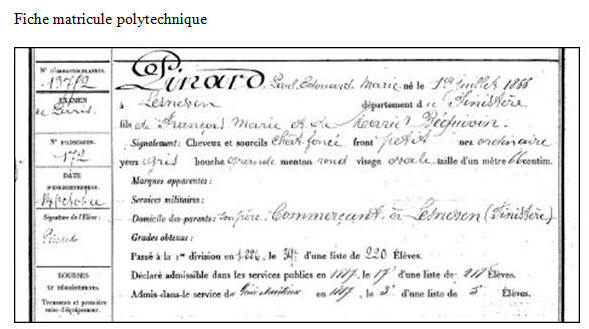 Fiche matricule polytechnique
N° D'IMMATRICULATION.
EXAMEN
de Paris.
N° D'ADMISSION.
172
DATE
D'ENREGISTREMENT.
Signature de l'Élève :
Pinard
BOURSES
ET DÉMISSIONS.
Trousseau et première
mise d'équipement.
Pinard, Paul Edouard Marie né le 1er juillet 1866
à Lesneven département du Finistère
fils de François Marie et de Marie
Signalement : Cheveux et sourcils chat. foncé front petit nez ordinaire
yeux gris bouche grande menton rond visage ovale taille d'un mètre 66 centim.
Marques apparentes :
Services militaires :
Domicile des parents : Son père, Commerçant, à Lesneven (Finistère)
Grades obtenus :
Passé à la 1re division en le d'une liste de 220 Élèves.
Déclaré admissible dans les services publics en 1887, le d'une liste de Élèves.
Admis dans le service du Génie Maritime en 1887 le 3e d'une liste de 5 Élèves.